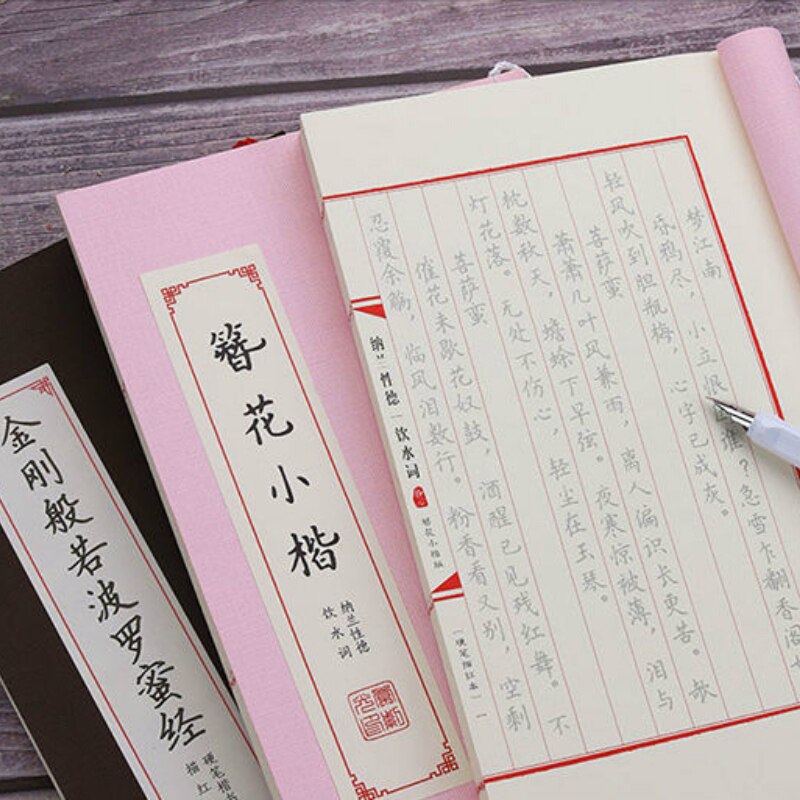 金刚般若波罗蜜经
硬笔楷书
描红
簪花小楷
纳兰性德
饮水词
梦江南
昏鸦尽，小立恨谁？急雪乍翻香阁
轻风吹到胆瓶梅，心字已成灰。
菩萨蛮
萧萧几叶风兼雨，离人偏识长更苦。欹
枕数秋天，蟾蜍下早弦。夜寒惊被薄，泪与
灯花落。无处不伤心，轻尘在玉琴。
菩萨蛮
催花未歇花奴鼓，酒醒已见残红舞。不
忍覆余觞，临风泪数行。粉香看又别，空剩
纳兰性德｜饮水词
簪花小楷版
［硬笔描红本］